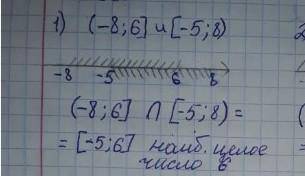 1) (-8;6] и [-5;8)
-8 -5 6 8
(-8;6] ∩ [-5;8) =
= [-5;6] наиб. целое
число 6